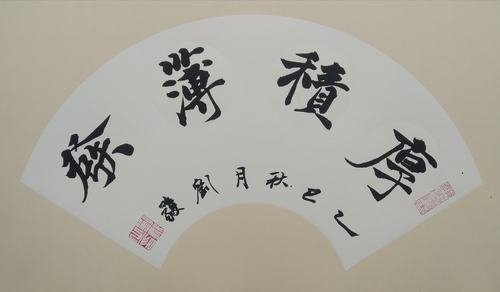 厚積薄發
乙巳秋月劉